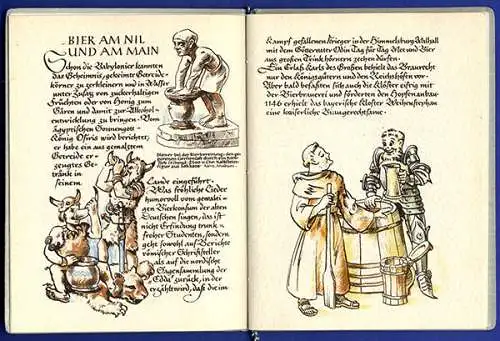 BIER AM NIL
UND AM MAIN
Schon die Babylonier kannten
das Geheimnis, gekeimte Getreide-
körner zu zerkleinern und in Wasser
unter Zusatz von zuckerhaltigen
Früchten oder von Honig zum
Gären und damit zur Alkohol-
entwicklung zu bringen. Vom
ägyptischen Sonnengott-
König Osiris wird berichtet,
er habe ein aus gemalztem
Getreide er-
zeugtes Ge-
tränk in
seinem
Lande eingeführt.
Was fröhliche Lieder
humorvoll vom gewalti-
gen Bierkonsum der alten
Deutschen singen, das ist
nicht Erfindung trunk-
froher Studenten, sondern
geht sowohl auf Berichte
römischer Schriftsteller
als auf die nordische
Sagensammlung der
"Edda" zurück, in der
erzählt wird, daß die im
Kampf gefallenen Krieger in der Himmelsburg Walhall
mit dem Göttervater Odin Tag für Tag Met und Bier
aus großen Trinkhörnern zechen dürfen.
Ein Erlaß Karls des Großen behielt das Braurecht
nur den Königsgütern und den Reichshöfen vor.
Aber bald befaßten sich auch die Klöster eifrig mit
der Bierbrauerei und förderten den Hopfenanbau.
1146 erhielt das bayerische Kloster Weihenstephan
eine kaiserliche Braugerechtsame.